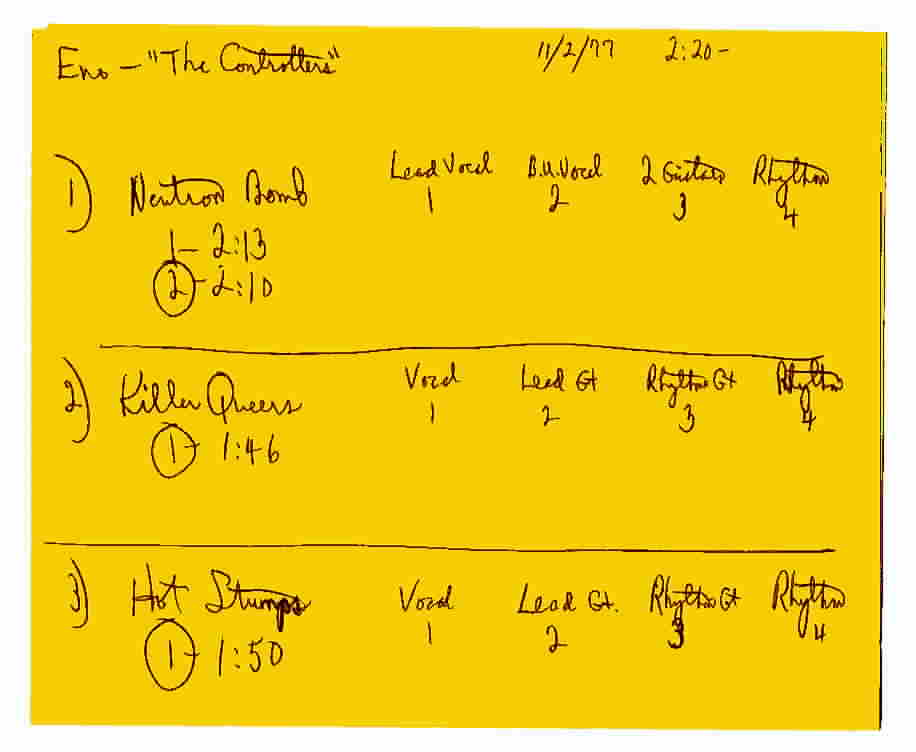 Eno - "The Controllers" 11/2/77 2:20-
1) Neutron Bomb Lead Vocal B.U. Vocal 2 Guitars Rhythm
1 2 3 4
1- 2:13
2- 2:10
2) Killer Queers Vocal Lead Gt Rhythm Gt Rhythm
1 2 3 4
1- 1:46
3) Hot Stumps Vocal Lead Gt. Rhythm Gt Rhythm
1 2 3 4
1- 1:50